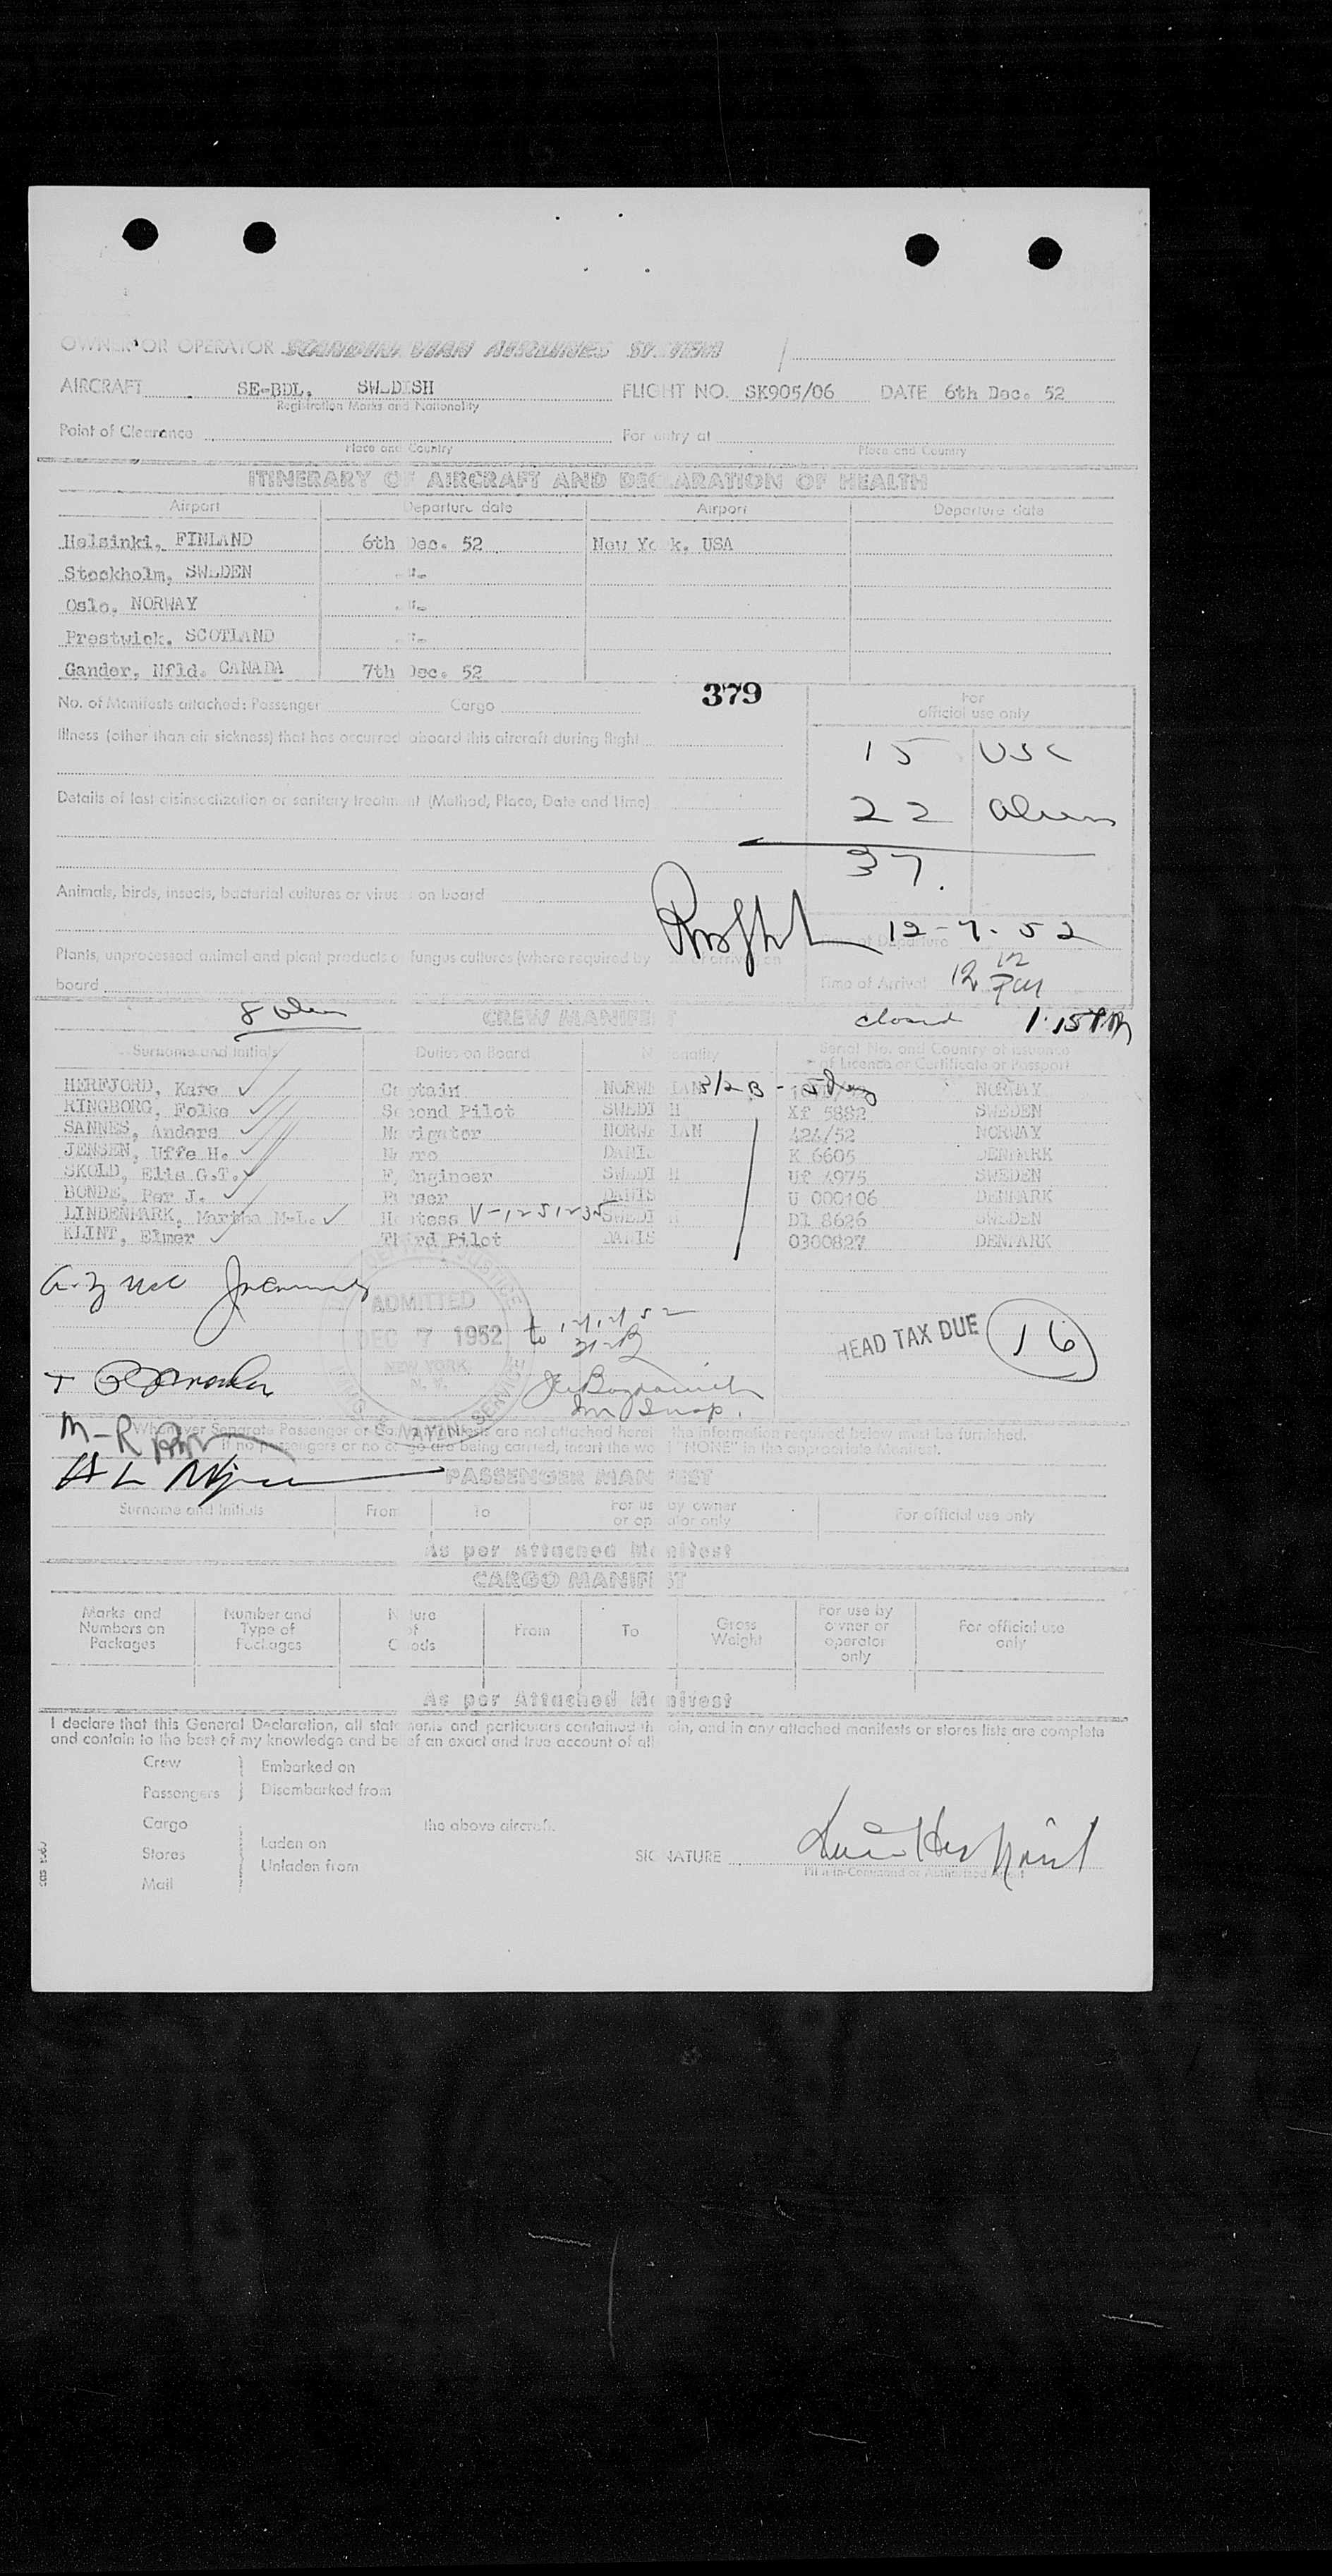 OWNER OR OPERATOR SCANDINAVIAN AIRLINES SYSTEM
AIRCRAFT SE-BDL. SWEDISH FLIGHT NO. SK905/06 DATE 6th Dec. 52
Registration Marks and Nationality
Point of Clearance For entry at
Place and Country Place and Country
ITINERARY OF AIRCRAFT AND DECLARATION OF HEALTH
Airport Departure date Airport Departure date
Helsinki, FINLAND 6th Dec. 52 New York, USA
Stockholm, SWEDEN -"-
Oslo, NORWAY -"-
Prestwick, SCOTLAND -"-
Gander, Nfld. CANADA 7th Dec. 52
379
No. of Manifests attached: Passenger Cargo
For official use only
Illness (other than air sickness) that has occurred aboard this aircraft during flight
15 USC
Details of last disinsectization or sanitary treatment (Method, Place, Date and Time)
22 Aliens
37.
Animals, birds, insects, bacterial cultures or virus on board
12-7-52
Plants, unprocessed animal and plant products or fungus cultures (where required by
board
Time of Departure
Time of Arrival 12 12 PM
8 Alien
CREW MANIFEST
closed 1:15 PM
Surname and Initials Duties on Board Nationality Serial No. and Country of Issuance of Licence or Certificate or Passport
HERFJORD, Kare Captain NORWEGIAN NORWAY
RINGBORG, Folke Second Pilot SWEDISH Xf 5882 SWEDEN
SANNES, Anders Navigator NORWEGIAN 424/52 NORWAY
JENSEN, Uffe H. DANISH K 6605 DENMARK
SKOLD, Elis G.T. F/Engineer SWEDISH Uf 4975 SWEDEN
BONDE, Per J. Purser DANISH U 000106 DENMARK
LINDENMARK, Martha M-L. Hostess V-1251235 SWEDISH Dl 8626 SWEDEN
KLINT, Elmer Third Pilot DANISH 0300827 DENMARK
ADMITTED
DEC 7 1952
NEW YORK,
N. Y.
HEAD TAX DUE 16
Whenever Separate Passenger or Cargo Manifests are not attached hereto the information required below must be furnished.
If no passengers or no cargo are being carried, insert the word "NONE" in the appropriate Manifest.
PASSENGER MANIFEST
Surname and Initials From To For use by owner or operator only For official use only
As per Attached Manifest
CARGO MANIFEST
Marks and Numbers on Packages Number and Type of Packages Nature of Goods From To Gross Weight For use by owner or operator only For official use only
As per Attached Manifest
I declare that this General Declaration, all statements and particulars contained therein, and in any attached manifests or stores lists are complete
and contain to the best of my knowledge and belief an exact and true account of all
Crew Embarked on
Passengers Disembarked from
Cargo the above aircraft.
Stores Laden on
Unladen from
Mail
SIGNATURE
Pilot-in-Command or Authorised Agent